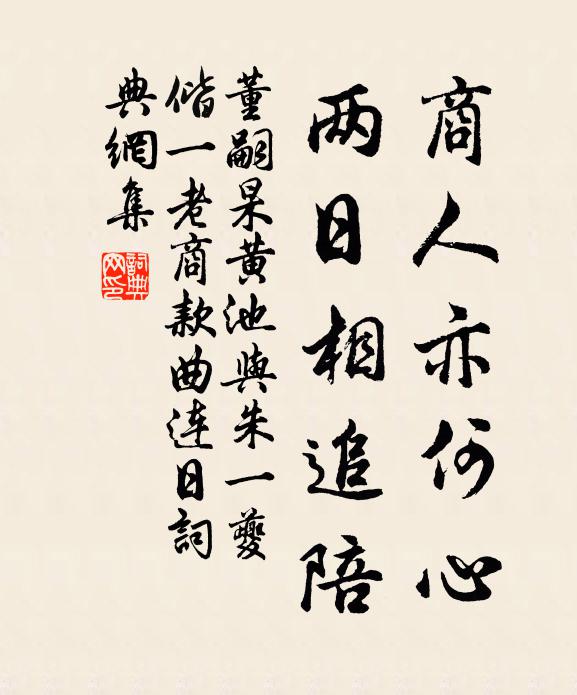 商人亦何心
两日相追陪
董嗣杲黄池與朱一夔
偕一老商款曲连日詞
典網集
詞典
网印